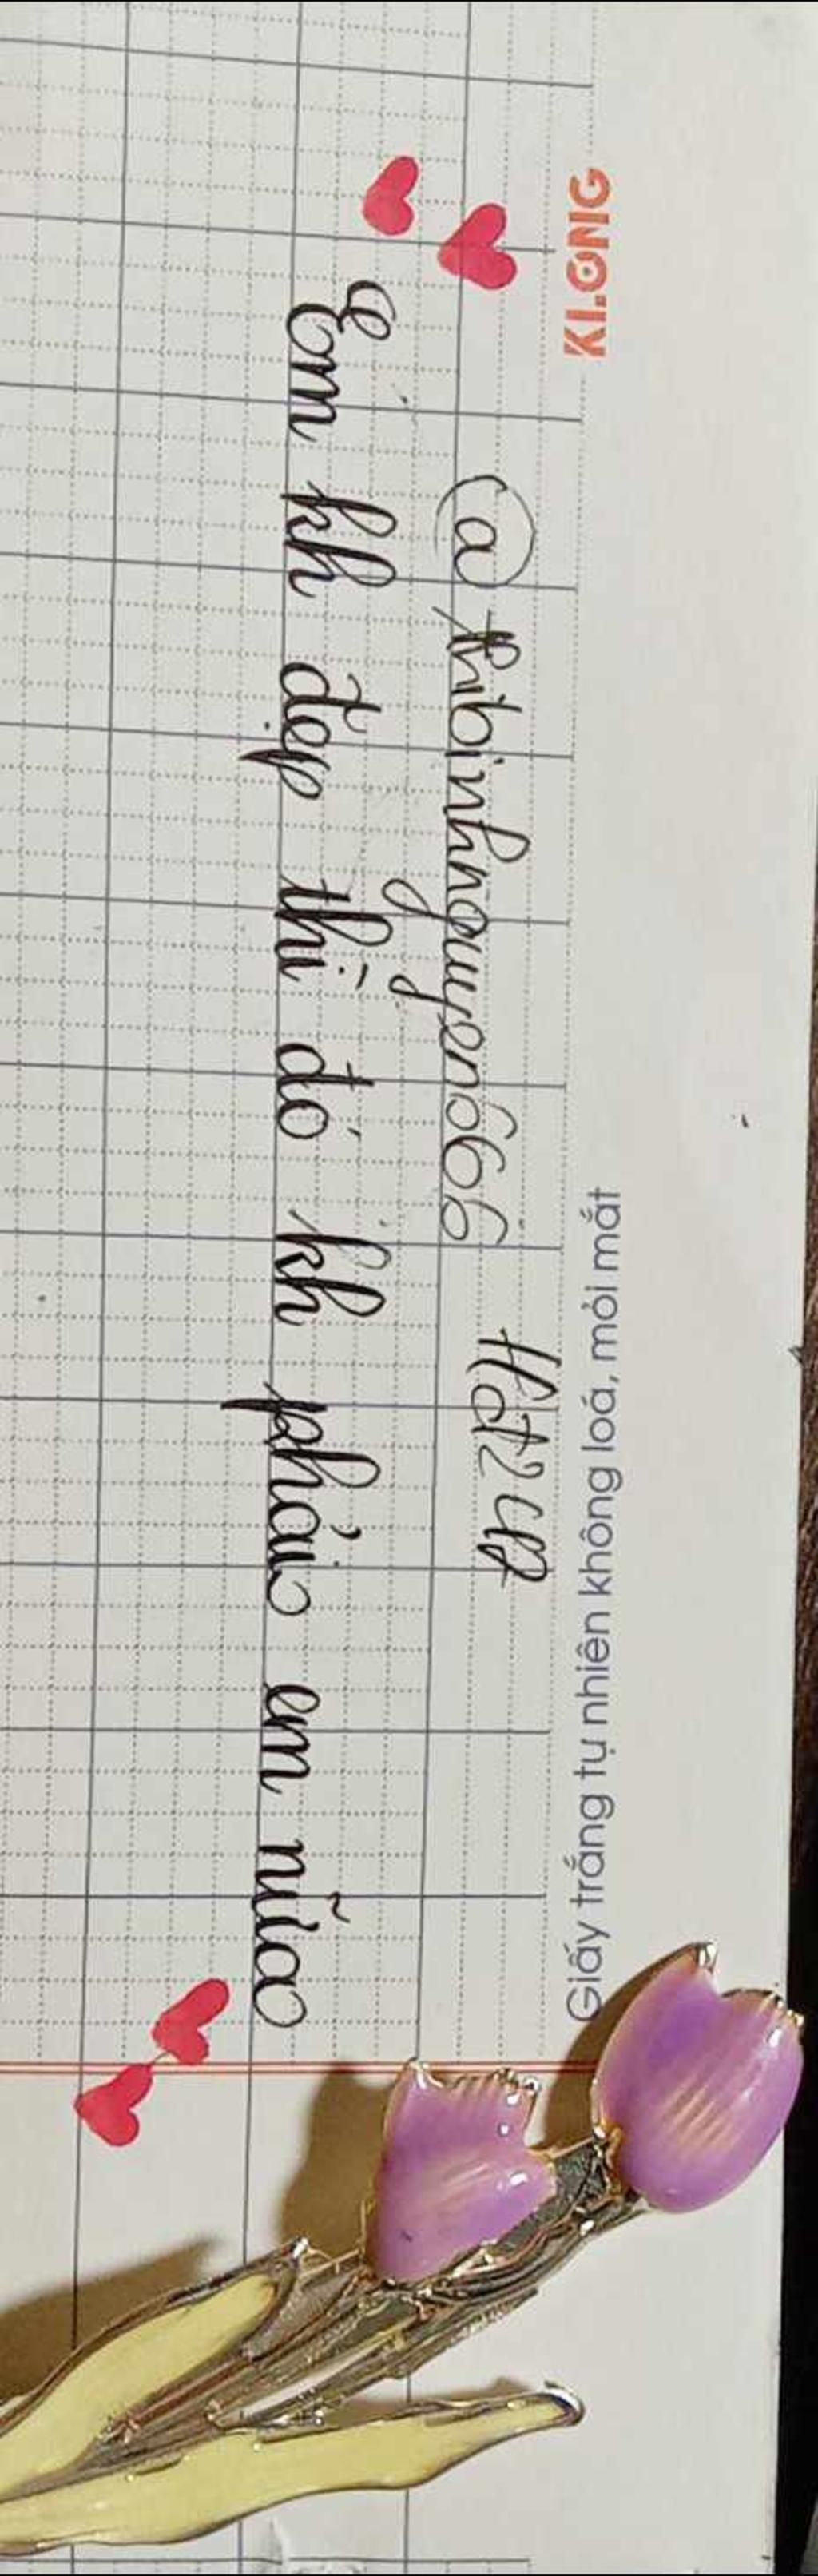 KLONG
Giấy trắng tự nhiên không loá, mỏi mắt
@thibinhnguyen666
Em kh đẹp thì đó kh phải em nữa